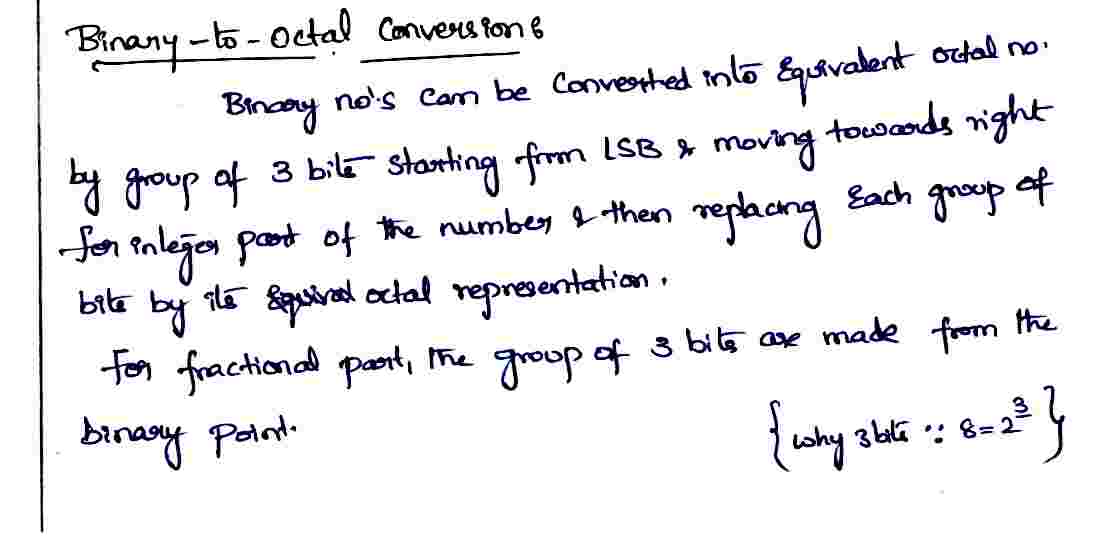 Binary-to-Octal Conversions
Binary no's can be Converted into Equivalent octal no.
by group of 3 bits starting from LSB & moving towards right
for integer part of the number & then replacing Each group of
bits by its octal representation.
For fractional part, the group of 3 bits are made from the
binary point.
{why 3 bits ∵ 8=2³}